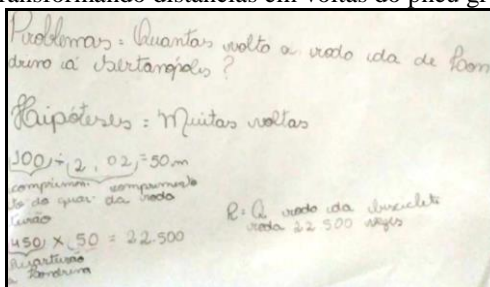 ransformando distâncias em voltas do pneu gr
Problemas: Quantas volta a roda da de Lon
drina a Sertanópolis?
Haipóteses: Muitas voltas
100 ÷ 2,02 = 50 m
comprimen- comprimento
to do quar- da roda
teirão
450 × 50 = 22.500
Quarteirão
Londrina
R: A roda da bicicleta
roda 22 500 vezes